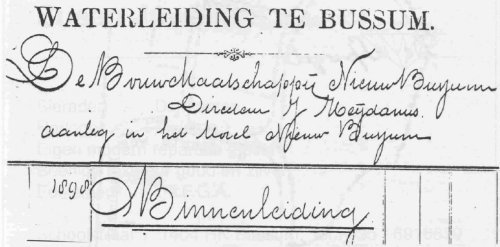 WATERLEIDING TE BUSSUM.
De BouwMaatschappij Nieuw Bussum
Directeur J Heijdanus.
aanleg in het Hotel Nieuw Bussum
1898 Binnenleiding